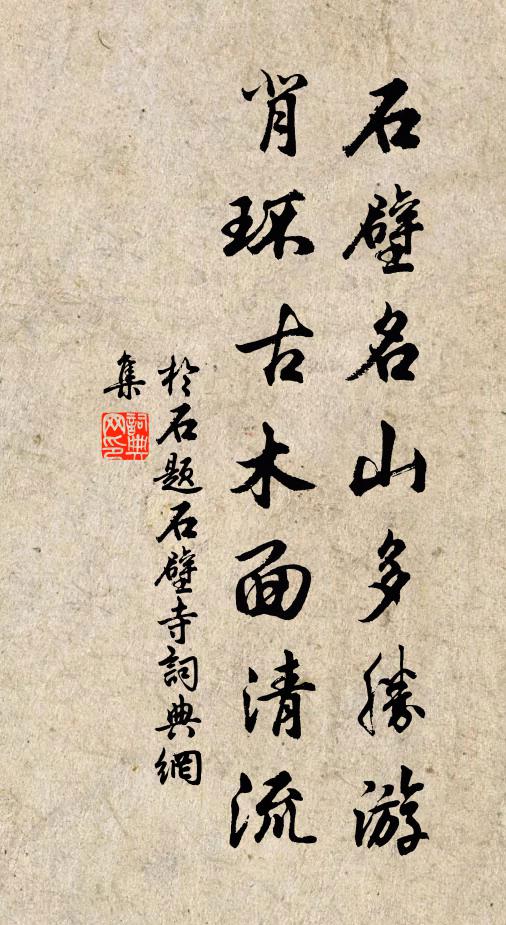 石壁名山多勝游
背环古木面清流
於石題石壁寺詞典網
集
詞典网印